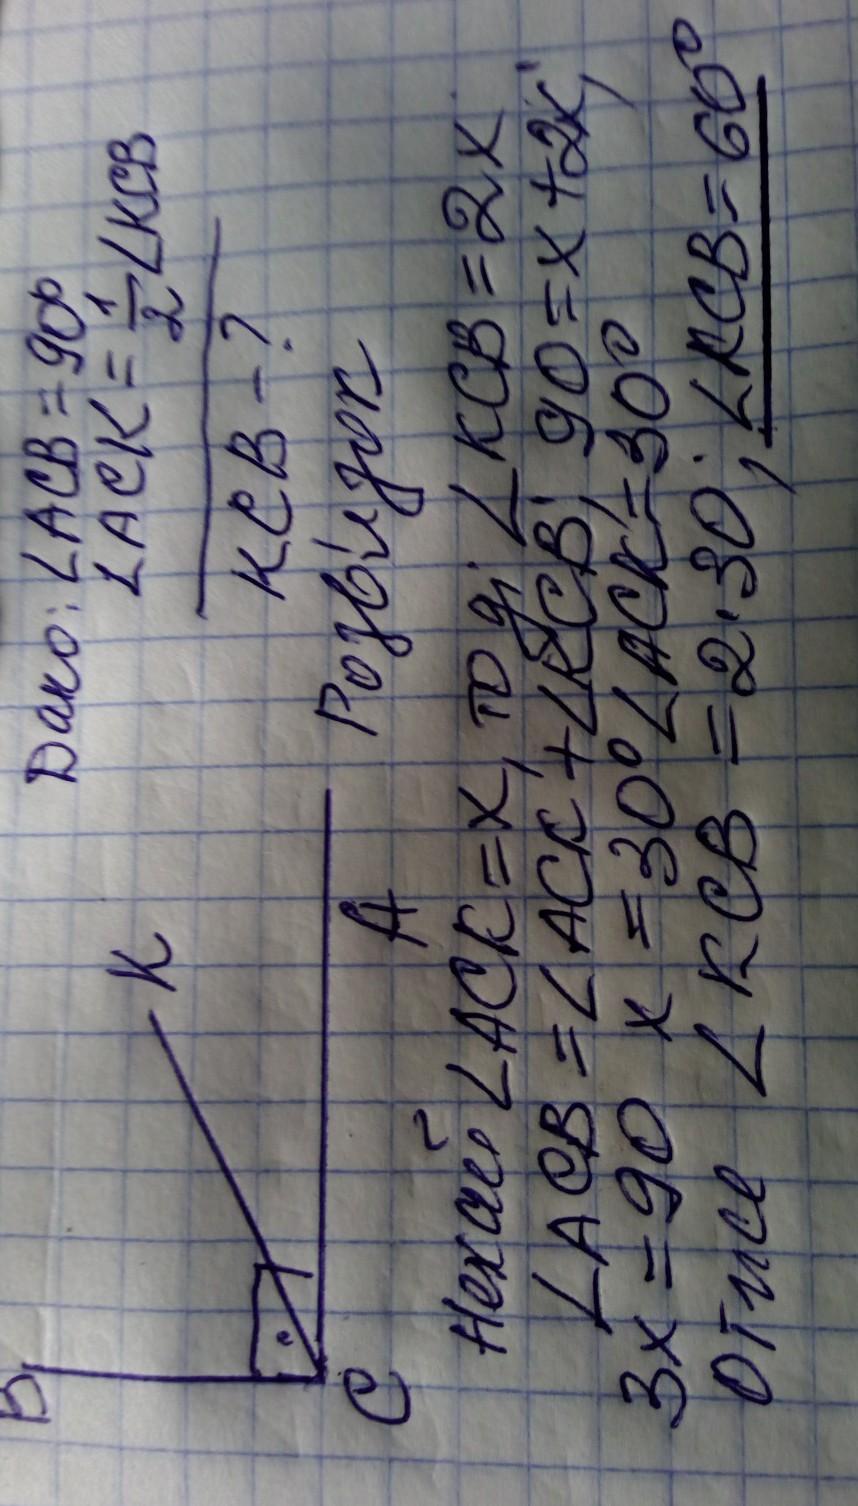 B
K
C
A
Дано: ∠ACB = 90°
∠ACK = 1/2 ∠KCB
KCB - ?
Розв'язок
Нехай ∠ACK = x, тоді ∠KCB = 2x
∠ACB = ∠ACK + ∠KCB; 90 = x + 2x;
3x = 90 x = 30° ∠ACK = 30°
Отже ∠KCB = 2·30; ∠KCB = 60°